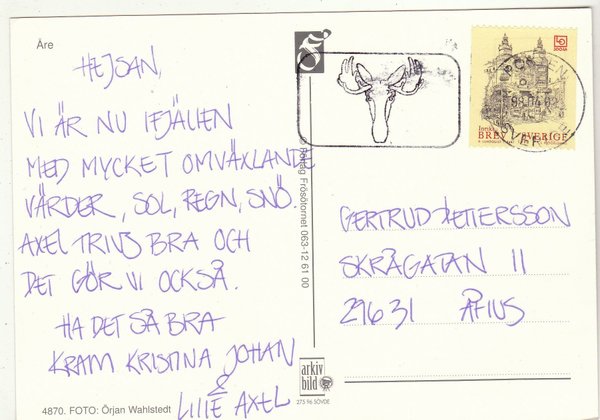 Åre
HEJSAN,
VI ÄR NU I FJÄLLEN
MED MYCKET OMVÄXLANDE
VÄRDER, SOL, REGN, SNÖ.
AXEL TRIVS BRA OCH
DET GÖR VI OCKSÅ.
HA DET SÅ BRA
KRAM KRISTINA JOHAN
&
LILLE AXEL
4870. FOTO: Örjan Wahlstedt
© Förlag Frösötornet 063-12 61 00
arkiv
bild
275 96 SÖVDE
LO
BREV SVERIGE
GERTRUD PETTERSSON
SKRÅGATAN 11
29631 ÅHUS